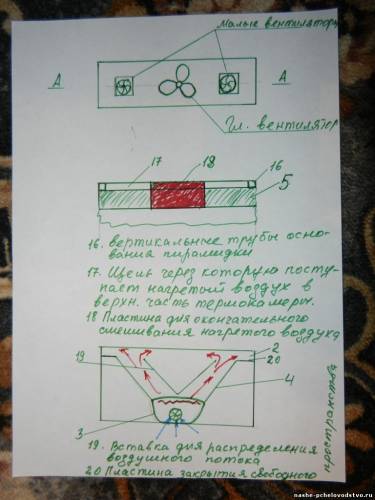 Малые вентиляторы
А
А
Гл. вентилятор
17
18
16
5
16. Вертикальные трубы осно-
вания пирамидки
17. Щель через которую посту-
пает нагретый воздух в
верхн. часть термокамеры.
18 Пластина для окончательного
смешивания нагретого воздуха
2
20
19
4
3
19. Вставка для распределения
воздушного потока
20 Пластина закрытия свободного
пространства
nashe-pchelovodstvo.ru